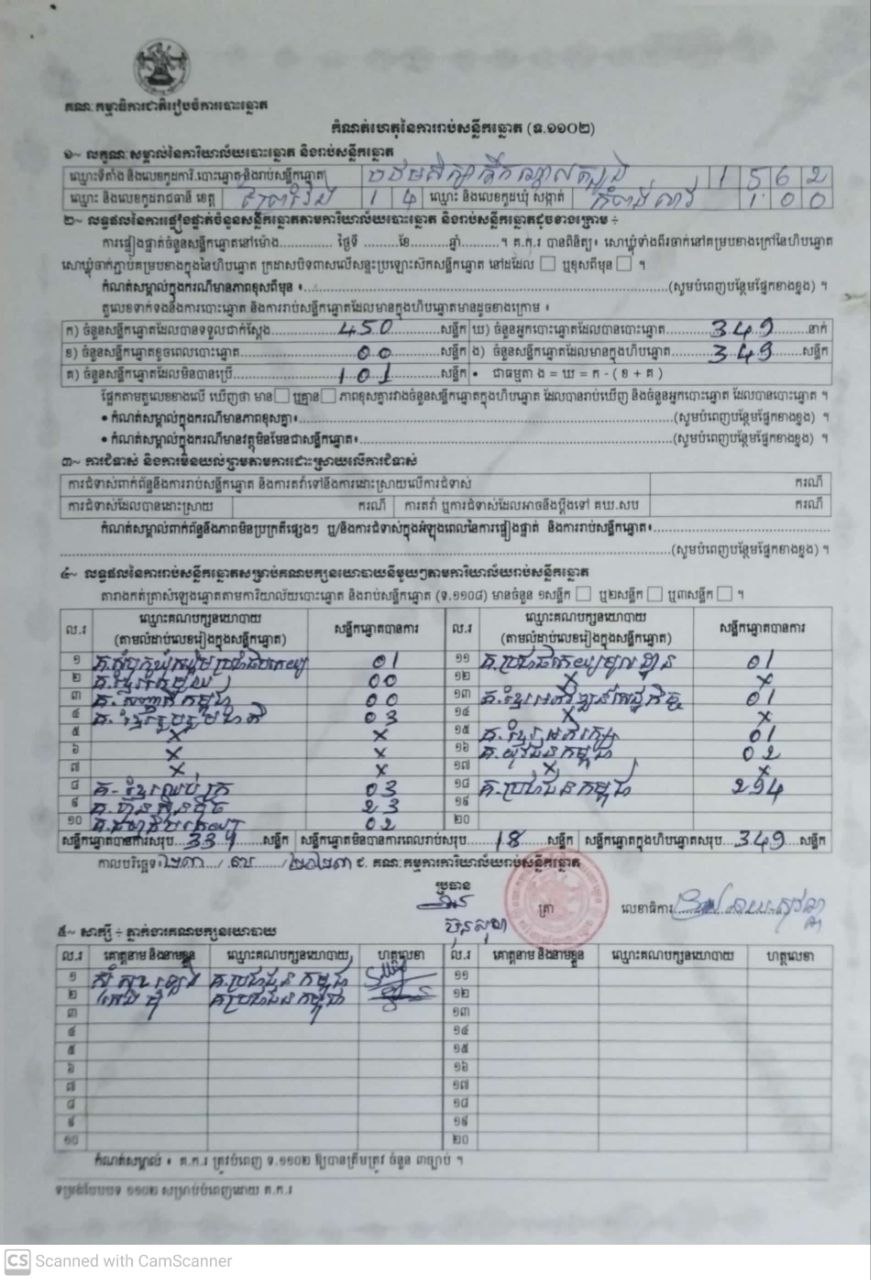 គណៈកម្មាធិការជាតិរៀបចំការបោះឆ្នោត
កំណត់ហេតុនៃការរាប់សន្លឹកឆ្នោត (ទ.១១០២)
១~ លក្ខណៈសម្គាល់នៃការិយាល័យបោះឆ្នោត និងរាប់សន្លឹកឆ្នោត
ឈ្មោះទីតាំង និងលេខកូដការិ.បោះឆ្នោត-និងរាប់សន្លឹកឆ្នោត 1562
ឈ្មោះ និងលេខកូដរាជធានី ខេត្ត ព្រៃវែង 14 ឈ្មោះ និងលេខកូដឃុំ សង្កាត់ 100
២~ លទ្ធផលនៃការផ្ទៀងផ្ទាត់ចំនួនសន្លឹកឆ្នោតតាមការិយាល័យបោះឆ្នោត និងរាប់សន្លឹកឆ្នោតដូចខាងក្រោម ÷
ការផ្ទៀងផ្ទាត់ចំនួនសន្លឹកឆ្នោតនៅម៉ោង............. ថ្ងៃទី ..........ខែ............ឆ្នាំ..........។ គ.ក.រ បានពិនិត្យ៖ សោឃ្លុំទាំងពីរចាក់នៅគម្របខាងក្រៅនៃហិបឆ្នោត
សោឃ្លុំចាក់ភ្ជាប់គម្របខាងក្នុងនៃហិបឆ្នោត ក្រដាសបិទពាសលើសន្ទះប្រឡោះស៊កសន្លឹកឆ្នោត នៅដដែល ☐ ឬខុសពីមុន ☐ ។
កំណត់សម្គាល់ក្នុងករណីមានភាពខុសពីមុន ៖..........(សូមបំពេញបន្ថែមផ្នែកខាងខ្នង) ។
តួលេខទាក់ទងនឹងការបោះឆ្នោត និងការរាប់សន្លឹកឆ្នោតដែលមានក្នុងហិបឆ្នោតមានដូចខាងក្រោម ៖
ក) ចំនួនសន្លឹកឆ្នោតដែលបានទទួលជាក់ស្តែង 450 សន្លឹក ឃ) ចំនួនអ្នកបោះឆ្នោតដែលបានបោះឆ្នោត 349 នាក់
ខ) ចំនួនសន្លឹកឆ្នោតខូចពេលបោះឆ្នោត 00 សន្លឹក ង) ចំនួនសន្លឹកឆ្នោតដែលមានក្នុងហិបឆ្នោត 349 សន្លឹក
គ) ចំនួនសន្លឹកឆ្នោតដែលមិនបានប្រើ 101 សន្លឹក • ជាធម្មតា ង = ឃ = ក - (ខ + គ)
ផ្អែកតាមតួលេខខាងលើ ឃើញថា មាន☐ ឬគ្មាន☐ ភាពខុសគ្នារវាងចំនួនសន្លឹកឆ្នោតក្នុងហិបឆ្នោត ដែលបានរាប់ឃើញ និងចំនួនអ្នកបោះឆ្នោត ដែលបានបោះឆ្នោត ។
• កំណត់សម្គាល់ក្នុងករណីមានភាពខុសគ្នា៖..........(សូមបំពេញបន្ថែមផ្នែកខាងខ្នង) ។
• កំណត់សម្គាល់ក្នុងករណីមានវត្ថុមិនមែនជាសន្លឹកឆ្នោត៖..........(សូមបំពេញបន្ថែមផ្នែកខាងខ្នង) ។
៣~ ការជំទាស់ និងការមិនយល់ព្រមតាមការដោះស្រាយលើការជំទាស់
ការជំទាស់ពាក់ព័ន្ធនឹងការរាប់សន្លឹកឆ្នោត និងការតវ៉ាទៅនឹងការដោះស្រាយលើការជំទាស់ ករណី
ការជំទាស់ដែលបានដោះស្រាយ ករណី ការតវ៉ា ឬការជំទាស់ដែលអាចនឹងប្តឹងទៅ គឃ.សប ករណី
កំណត់សម្គាល់ពាក់ព័ន្ធនឹងភាពមិនប្រក្រតីផ្សេងៗ ឬ/និងការជំទាស់ក្នុងអំឡុងពេលនៃការផ្ទៀងផ្ទាត់ និងការរាប់សន្លឹកឆ្នោត៖..........
..........(សូមបំពេញបន្ថែមផ្នែកខាងខ្នង) ។
៤~ លទ្ធផលនៃការរាប់សន្លឹកឆ្នោតសម្រាប់គណបក្សនយោបាយនីមួយៗតាមការិយាល័យរាប់សន្លឹកឆ្នោត
តារាងកត់ត្រាសំឡេងឆ្នោតតាមការិយាល័យបោះឆ្នោត និងរាប់សន្លឹកឆ្នោត (ទ.១១០៨) មានចំនួន ១សន្លឹក ☐ ឬ២សន្លឹក ☐ ឬ៣សន្លឹក ☐ ។
ល.រ ឈ្មោះគណបក្សនយោបាយ សន្លឹកឆ្នោតបានការ ល.រ ឈ្មោះគណបក្សនយោបាយ សន្លឹកឆ្នោតបានការ
(តាមលំដាប់លេខរៀងក្នុងសន្លឹកឆ្នោត) (តាមលំដាប់លេខរៀងក្នុងសន្លឹកឆ្នោត)
១ 01 ១១ គ.ប្រជាធិបតេយ្យមូលដ្ឋាន 01
២ គ.ខ្មែររួបរួម 00 ១២ x x
៣ គ. សញ្ជាតិកម្ពុជា 00 ១៣ គ.ខ្មែរអភិវឌ្ឍន៍សេដ្ឋកិច្ច 01
៤ គ. ខ្មែររួបរួមជាតិ 03 ១៤ x x
៥ x x ១៥ គ.ខ្មែរអភិរក្ស 01
៦ x x ១៦ គ.យុវជនកម្ពុជា 02
៧ x x ១៧ x x
៨ គ- ខ្មែរឈប់ក្រ 03 ១៨ គ.ប្រជាជនកម្ពុជា 294
៩ គ.ហ៊្វុនស៊ិនប៉ិច 23 ១៩
១០ 02 ២០
សន្លឹកឆ្នោតបានការសរុប 331 សន្លឹក សន្លឹកឆ្នោតមិនបានការពេលរាប់សរុប 18 សន្លឹក សន្លឹកឆ្នោតក្នុងហិបឆ្នោតសរុប 349 សន្លឹក
កាលបរិច្ឆេទ ២៣/៧/២០២៣ ជ. គណៈកម្មការការិយាល័យរាប់សន្លឹកឆ្នោត
ប្រធាន
ត្រា លេខាធិការ
៥~ សាក្សី ÷ ភ្នាក់ងារគណបក្សនយោបាយ
ល.រ គោត្តនាម និងនាមខ្លួន ឈ្មោះគណបក្សនយោបាយ ហត្ថលេខា ល.រ គោត្តនាម និងនាមខ្លួន ឈ្មោះគណបក្សនយោបាយ ហត្ថលេខា
១ គ.ប្រជាជនកម្ពុជា ១១
២ គ.ប្រជាជនកម្ពុជា ១២
៣ ១៣
៤ ១៤
៥ ១៥
៦ ១៦
៧ ១៧
៨ ១៨
៩ ១៩
១០ ២០
កំណត់សម្គាល់ ៖ គ.ក.រ ត្រូវបំពេញ ទ.១១០២ ឱ្យបានត្រឹមត្រូវ ចំនួន ៣ច្បាប់ ។
ទម្រង់បែបបទ ១១០២ សម្រាប់បំពេញដោយ គ.ក.រ
CS Scanned with CamScanner